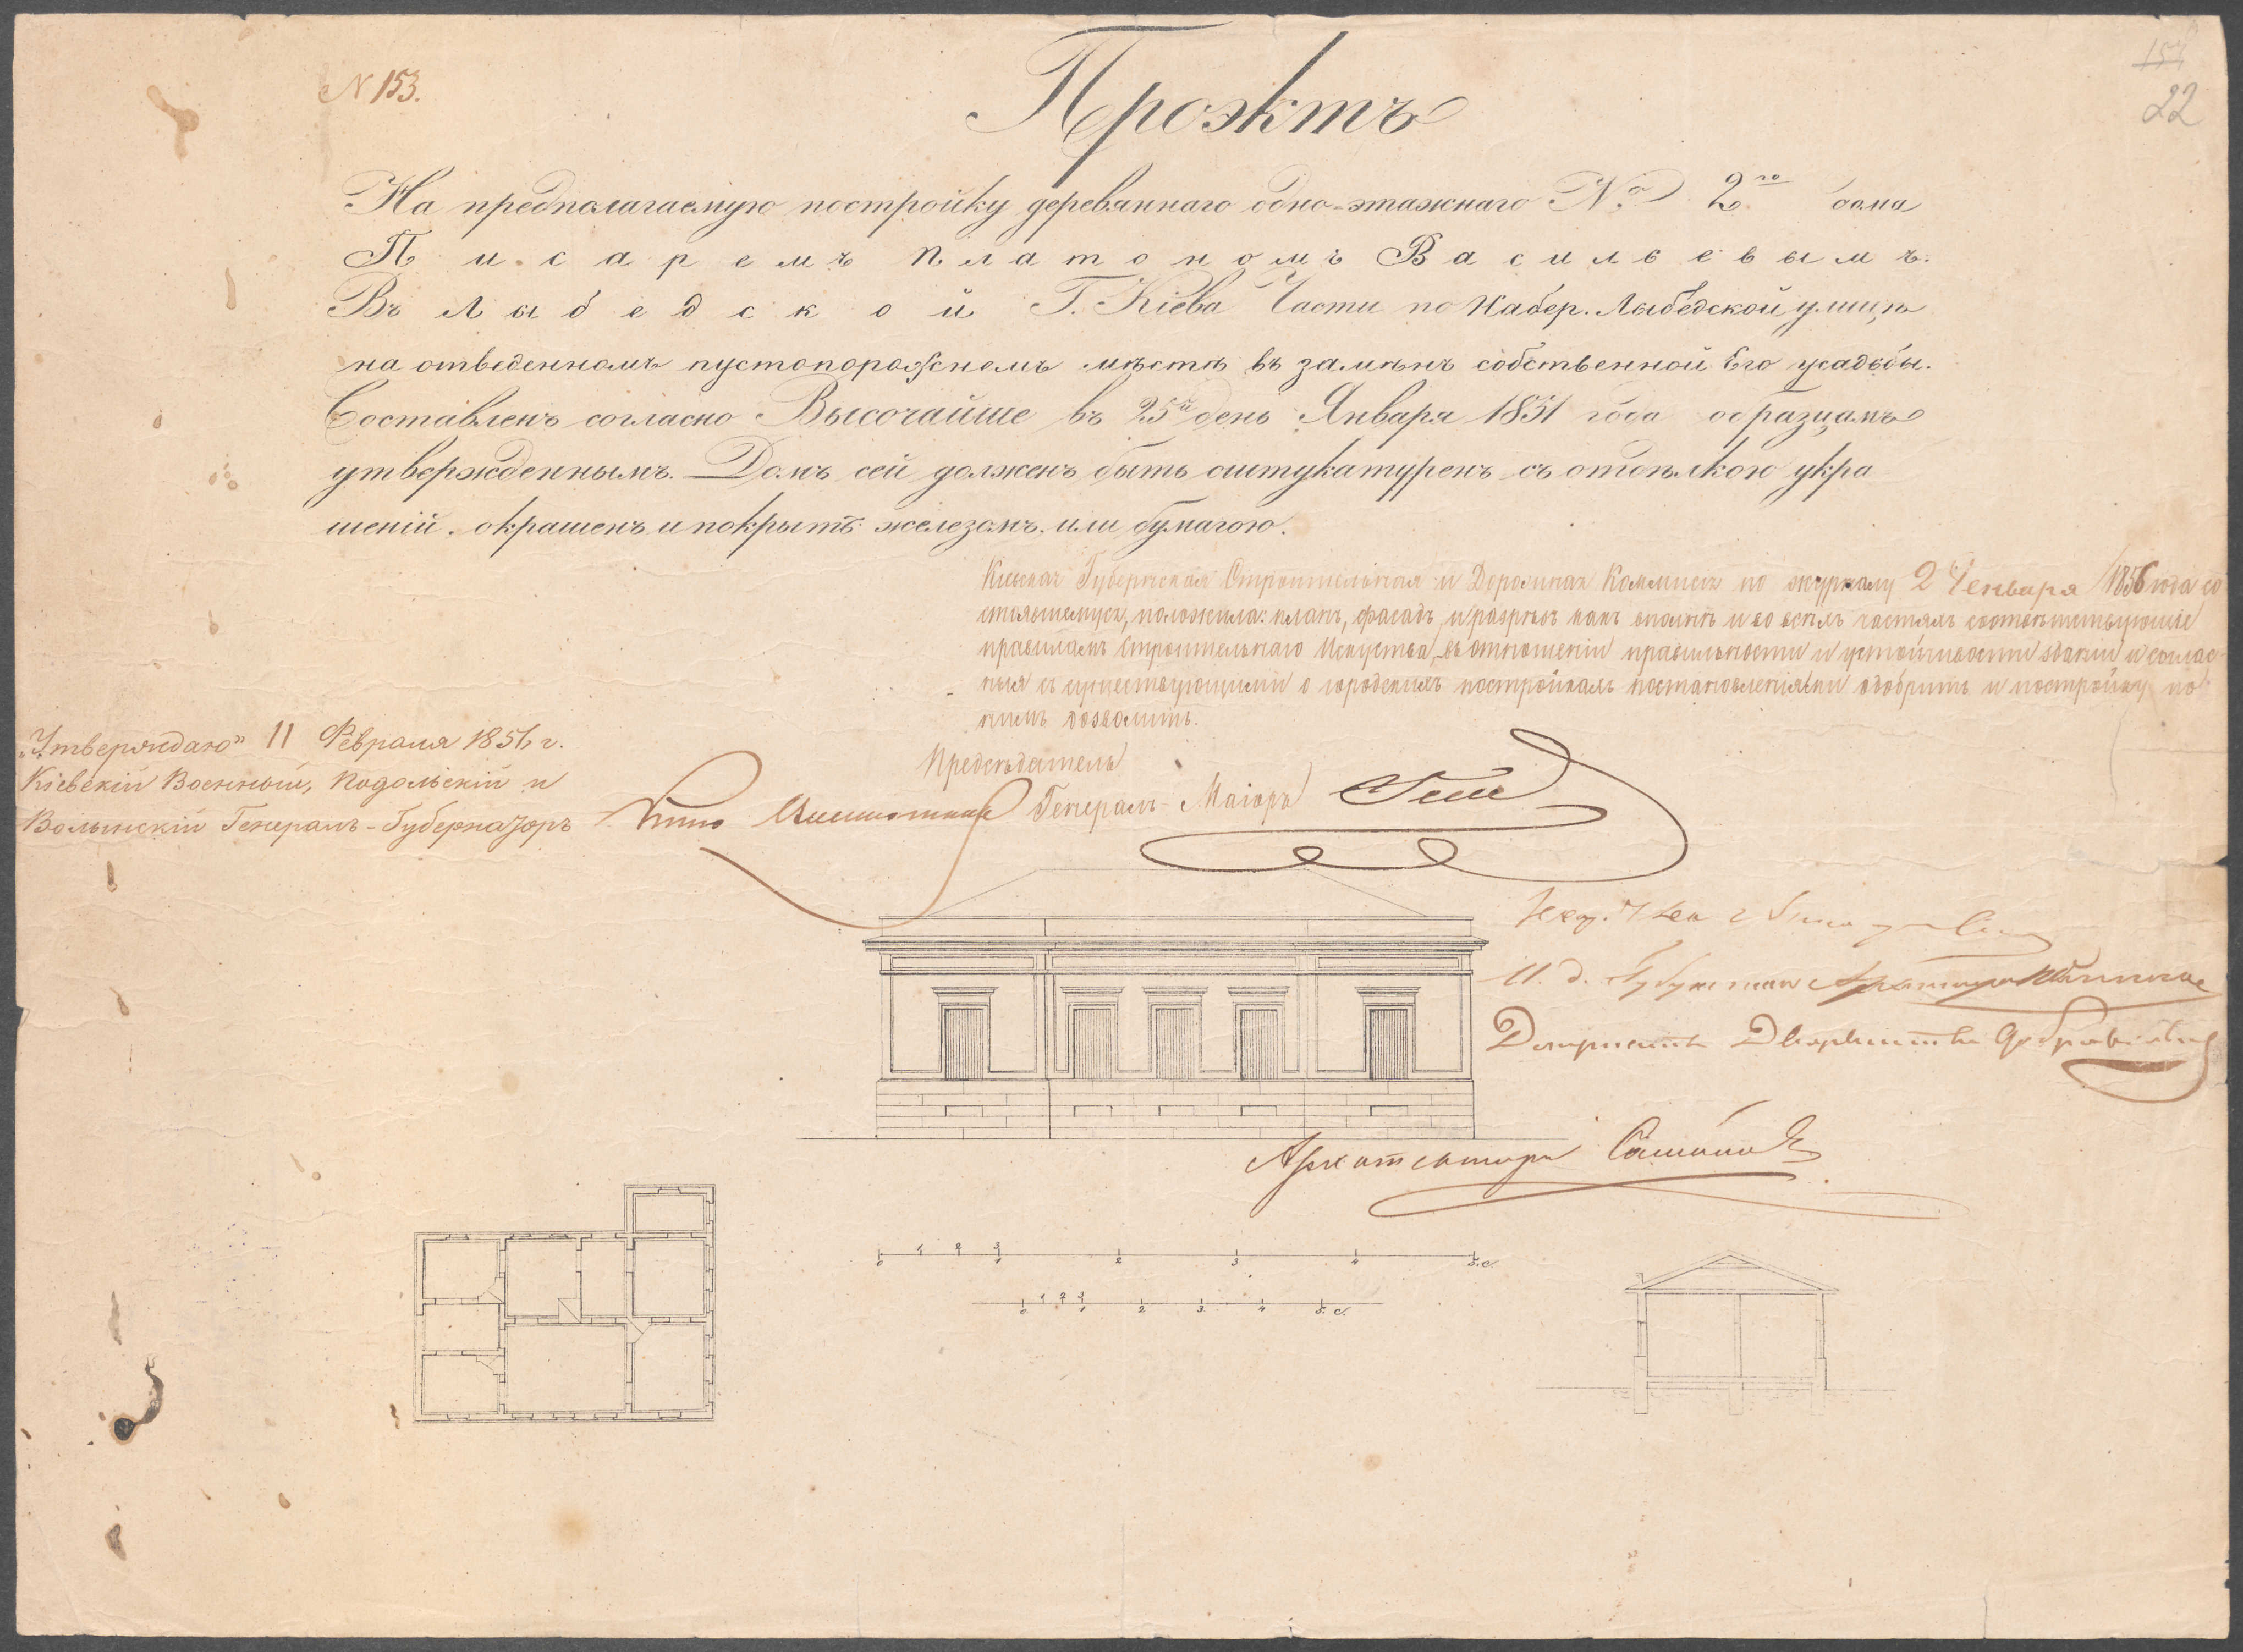 N 153.
157
22
Проэктъ
На предполагаемую постройку деревяннаго одно-этажнаго № 2го дома
Писаремъ Платономъ Васильевымъ.
Въ Лыбедской Г. Кіева Части по Набер. Лыбедской улицѣ
на отведенномъ пустопорожнемъ мѣстѣ въ замѣнъ собственной Его усадьбы.
Составленъ согласно Высочайше въ 25й день Января 1851 года образцамъ
утвержденнымъ. Домъ сей долженъ быть оштукатуренъ съ отдѣлкою укра
шеній. окрашенъ и покрытъ железомъ. или бумагою.
Кіевская Губернская Строительная и Дорожная Коммисія по журналу 2 Генваря 1856 года со
стоявшемуся, положила: планъ, фасадъ и разрѣзъ какъ вполнѣ и во всѣхъ частяхъ соотвѣтствующіе
правиламъ Строительнаго Искуства, въ отношеніи правильности и устойчивости зданій и соглас-
ныя съ существующими о городскихъ постройкахъ постановленіями одобрить и постройку по
нимъ дозволить.
Предсѣдатель
Генералъ-Маіоръ
„Утверждаю" 11 Февраля 1856 г.
Кіевскій Военный, Подольскій и
Волынскій Генералъ-Губернаторъ
Князь Васильчиковъ
И. д. Губернскаго Архитектора
Депутатъ Дворянства
Архитекторъ
1 2 3
0 1 2 3 4 5. с.
1 2 3
0 1 2 3 4 5. с.